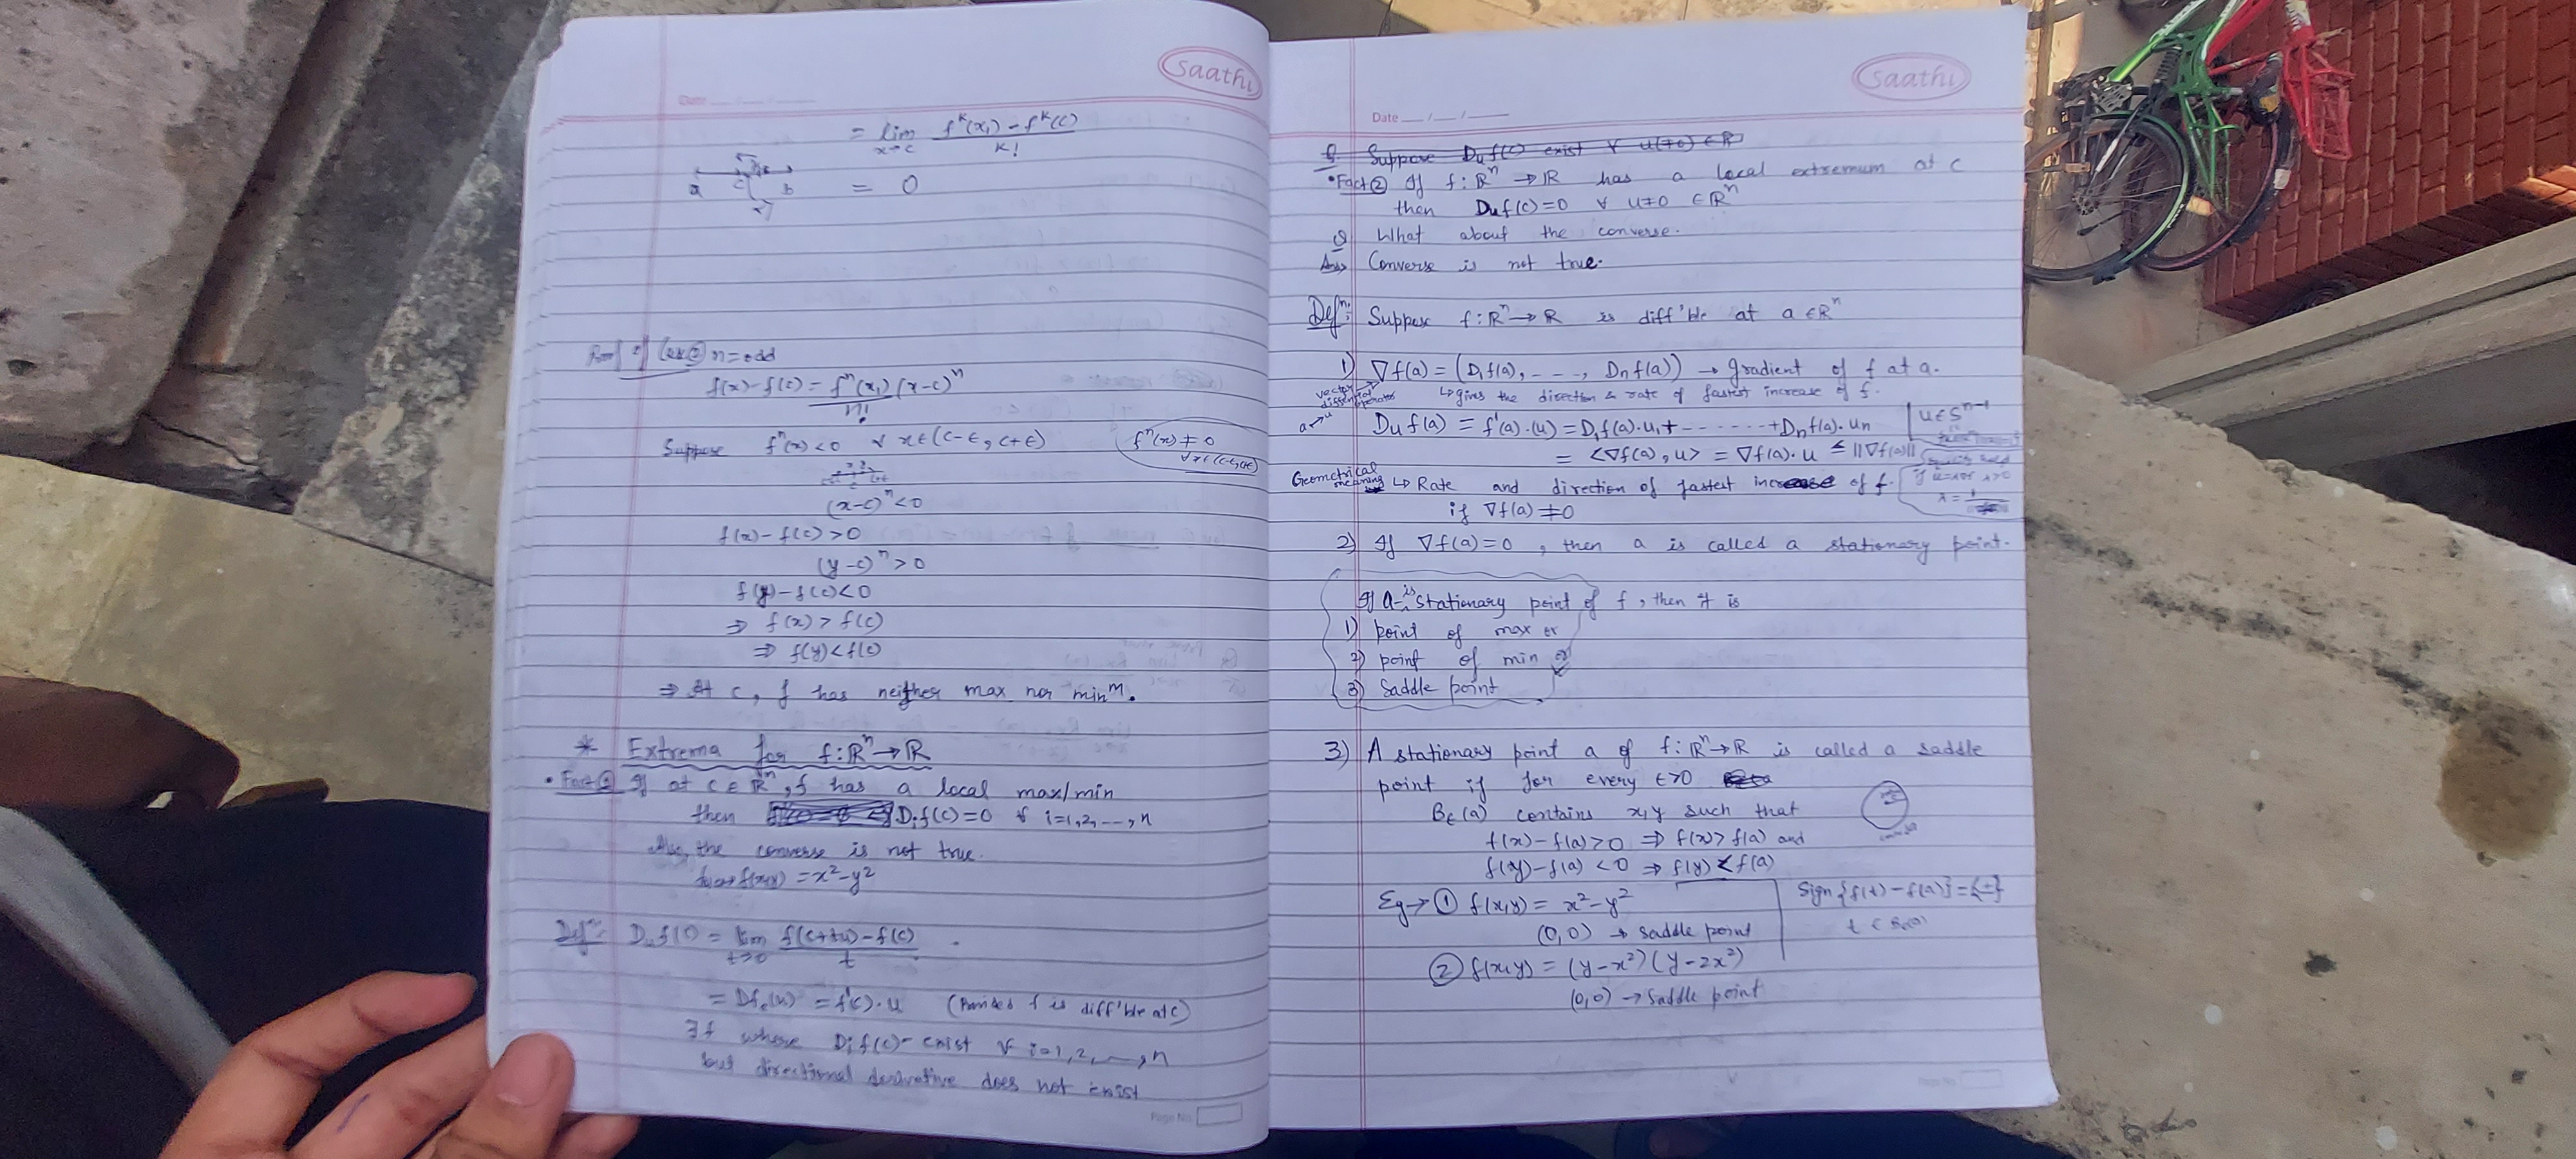 Saathi
Date
= lim x→c f^k(x₁) - f^k(c) / k!
a c b
= 0
Proof of case ② n = odd
f(x) - f(c) = f^n(x₁) (x-c)^n / n!
Suppose f^n(x) < 0 ∀ x ∈ (c-ε, c+ε)
f^n(x) ≠ 0
∀ x ∈ (c-ε, c+ε)
(x-c)^n < 0
f(x) - f(c) > 0
(y-c)^n > 0
f(y) - f(c) < 0
⇒ f(x) > f(c)
⇒ f(y) < f(c)
⇒ At c, f has neither max nor min^m.
* Extrema for f: ℝ^n → ℝ
• Fact ① If at c ∈ ℝ^n, f has a local max/min
then D_i f(c) = 0 ∀ i = 1, 2, ---, n
the converse is not true.
f(x,y) = x² - y²
Def^n: D_u f(c) = lim t→0 f(c+tu) - f(c) / t
= Df_c(u) = f'(c)·u (Provided f is diff'ble at c)
∃ f where D_i f(c) - exist ∀ i = 1, 2, ---, n
but directional derivative does not exist
Page No.
Saathi
Date __/__/__
Q Suppose D_u f(c) exist ∀ u(≠0) ∈ ℝ
• Fact ② If f: ℝ^n → ℝ has a local extremum at c
then D_u f(c) = 0 ∀ u ≠ 0 ∈ ℝ^n
Q What about the converse.
Ans> Converse is not true.
Def^n: Suppose f: ℝ^n → ℝ is diff'ble at a ∈ ℝ^n
1) ∇f(a) = (D₁f(a), - - -, D_n f(a)) → gradient of f at a.
vector
operator
↳ gives the direction & rate of fastest increase of f.
a → u
D_u f(a) = f'(a)·(u) = D₁f(a)·u₁ + - - - - - - + D_n f(a)·u_n
u ∈ S^{n-1}
= <∇f(a), u> = ∇f(a)·u ≤ ||∇f(a)||
Geometrical meaning ↳ Rate and direction of fastest increase of f.
if ∇f(a) ≠ 0
2) If ∇f(a) = 0, then a is called a stationary point.
If a is stationary point of f, then it is
1) point of max or
2) point of min or
3) Saddle point
3) A stationary point a of f: ℝ^n → ℝ is called a saddle
point if for every ε > 0
B_ε(a) contains x, y such that
f(x) - f(a) > 0 ⇒ f(x) > f(a) and
f(y) - f(a) < 0 ⇒ f(y) < f(a)
Eg → ① f(x,y) = x² - y²
Sign {f(t) - f(a)} = {±}
(0,0) → saddle point
② f(x,y) = (y-x²)(y-2x²)
(0,0) → Saddle point
Page No.